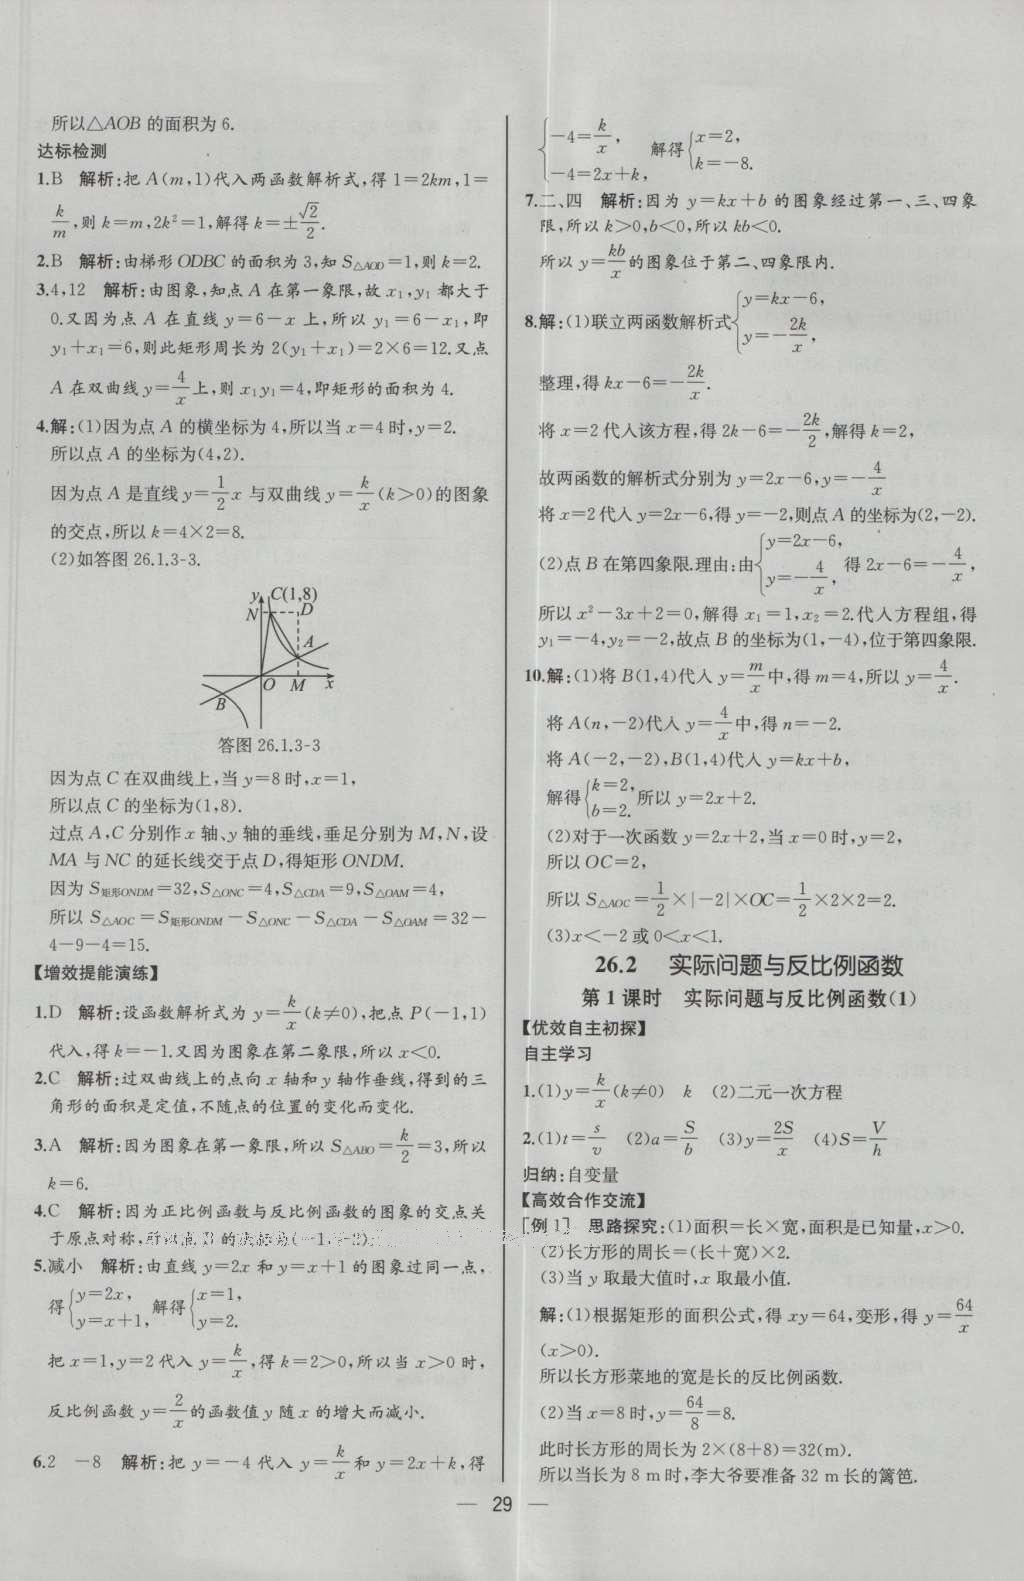 所以△AOB 的面积为 6.
达标检测
1.B 解析:把 A(m,1)代入两函数解析式,得 1=2km,1=
k/m,则 k=m,2k²=1,解得 k=±√2/2.
2.B 解析:由梯形 ODBC 的面积为 3,知 S△AOD=1,则 k=2.
3.4,12 解析:由图象,知点 A 在第一象限,故 x₁,y₁ 都大于
0.又因为点 A 在直线 y=6-x 上,所以 y₁=6-x₁,即
y₁+x₁=6,则此矩形周长为 2(y₁+x₁)=2×6=12.又点
A 在双曲线 y=4/x 上,则 x₁y₁=4,即矩形的面积为 4.
4.解:(1)因为点 A 的横坐标为 4,所以当 x=4 时,y=2.
所以点 A 的坐标为(4,2).
因为点 A 是直线 y=1/2 x 与双曲线 y=k/x(k>0)的图象
的交点,所以 k=4×2=8.
(2)如答图 26.1.3-3.
y C(1,8)
N D
A
O M x
B
答图 26.1.3-3
因为点 C 在双曲线上,当 y=8 时,x=1,
所以点 C 的坐标为(1,8).
过点 A,C 分别作 x 轴、y 轴的垂线,垂足分别为 M,N,设
MA 与 NC 的延长线交于点 D,得矩形 ONDM.
因为 S矩形ONDM=32,S△ONC=4,S△CDA=9,S△OAM=4,
所以 S△AOC=S矩形ONDM-S△ONC-S△CDA-S△OAM=32-
4-9-4=15.
【增效提能演练】
1.D 解析:设函数解析式为 y=k/x(k≠0),把点 P(-1,1)
代入,得 k=-1.又因为图象在第二象限,所以 x<0.
2.C 解析:过双曲线上的点向 x 轴和 y 轴作垂线,得到的三
角形的面积是定值,不随点的位置的变化而变化.
3.A 解析:因为图象在第一象限,所以 S△ABO=k/2=3,所以
k=6.
4.C 解析:因为正比例函数与反比例函数的图象的交点关
于原点对称,所以点 B 的坐标为(-1,-2).
5.减小 解析:由直线 y=2x 和 y=x+1 的图象过同一点,
得{y=2x, y=x+1, 解得{x=1, y=2.
把 x=1,y=2 代入 y=k/x,得 k=2>0,所以当 x>0 时,
反比例函数 y=2/x 的函数值 y 随 x 的增大而减小.
6.2 -8 解析:把 y=-4 代入 y=k/x 和 y=2x+k,得
{-4=k/x, -4=2x+k, 解得{x=2, k=-8.
7.二、四 解析:因为 y=kx+b 的图象经过第一、三、四象
限,所以 k>0,b<0,所以 kb<0.
所以 y=kb/x 的图象位于第二、四象限内.
8.解:(1)联立两函数解析式{y=kx-6, y=-2k/x,
整理,得 kx-6=-2k/x.
将 x=2 代入该方程,得 2k-6=-2k/2,解得 k=2,
故两函数的解析式分别为 y=2x-6,y=-4/x
将 x=2 代入 y=2x-6,得 y=-2,则点 A 的坐标为(2,-2).
(2)点 B 在第四象限.理由:由{y=2x-6, y=-4/x, 得 2x-6=-4/x,
所以 x²-3x+2=0,解得 x₁=1,x₂=2.代入方程组,得
y₁=-4,y₂=-2,故点 B 的坐标为(1,-4),位于第四象限.
10.解:(1)将 B(1,4)代入 y=m/x 中,得 m=4,所以 y=4/x.
将 A(n,-2)代入 y=4/x 中,得 n=-2.
将 A(-2,-2),B(1,4)代入 y=kx+b,
解得{k=2, b=2. 所以 y=2x+2.
(2)对于一次函数 y=2x+2,当 x=0 时,y=2,
所以 OC=2,
所以 S△AOC=1/2×|-2|×OC=1/2×2×2=2.
(3)x<-2 或 0<x<1.
26.2 实际问题与反比例函数
第 1 课时 实际问题与反比例函数(1)
【优效自主初探】
自主学习
1.(1)y=k/x(k≠0) k (2)二元一次方程
2.(1)t=s/v (2)a=S/b (3)y=2S/x (4)S=V/h
归纳:自变量
【高效合作交流】
[例 1] 思路探究:(1)面积=长×宽,面积是已知量,x>0.
(2)长方形的周长=(长+宽)×2.
(3)当 y 取最大值时,x 取最小值.
解:(1)根据矩形的面积公式,得 xy=64,变形,得 y=64/x
(x>0).
所以长方形菜地的宽是长的反比例函数.
(2)当 x=8 时,y=64/8=8.
此时长方形的周长为 2×(8+8)=32(m).
所以当长为 8 m 时,李大爷要准备 32 m 长的篱笆.
— 29 —